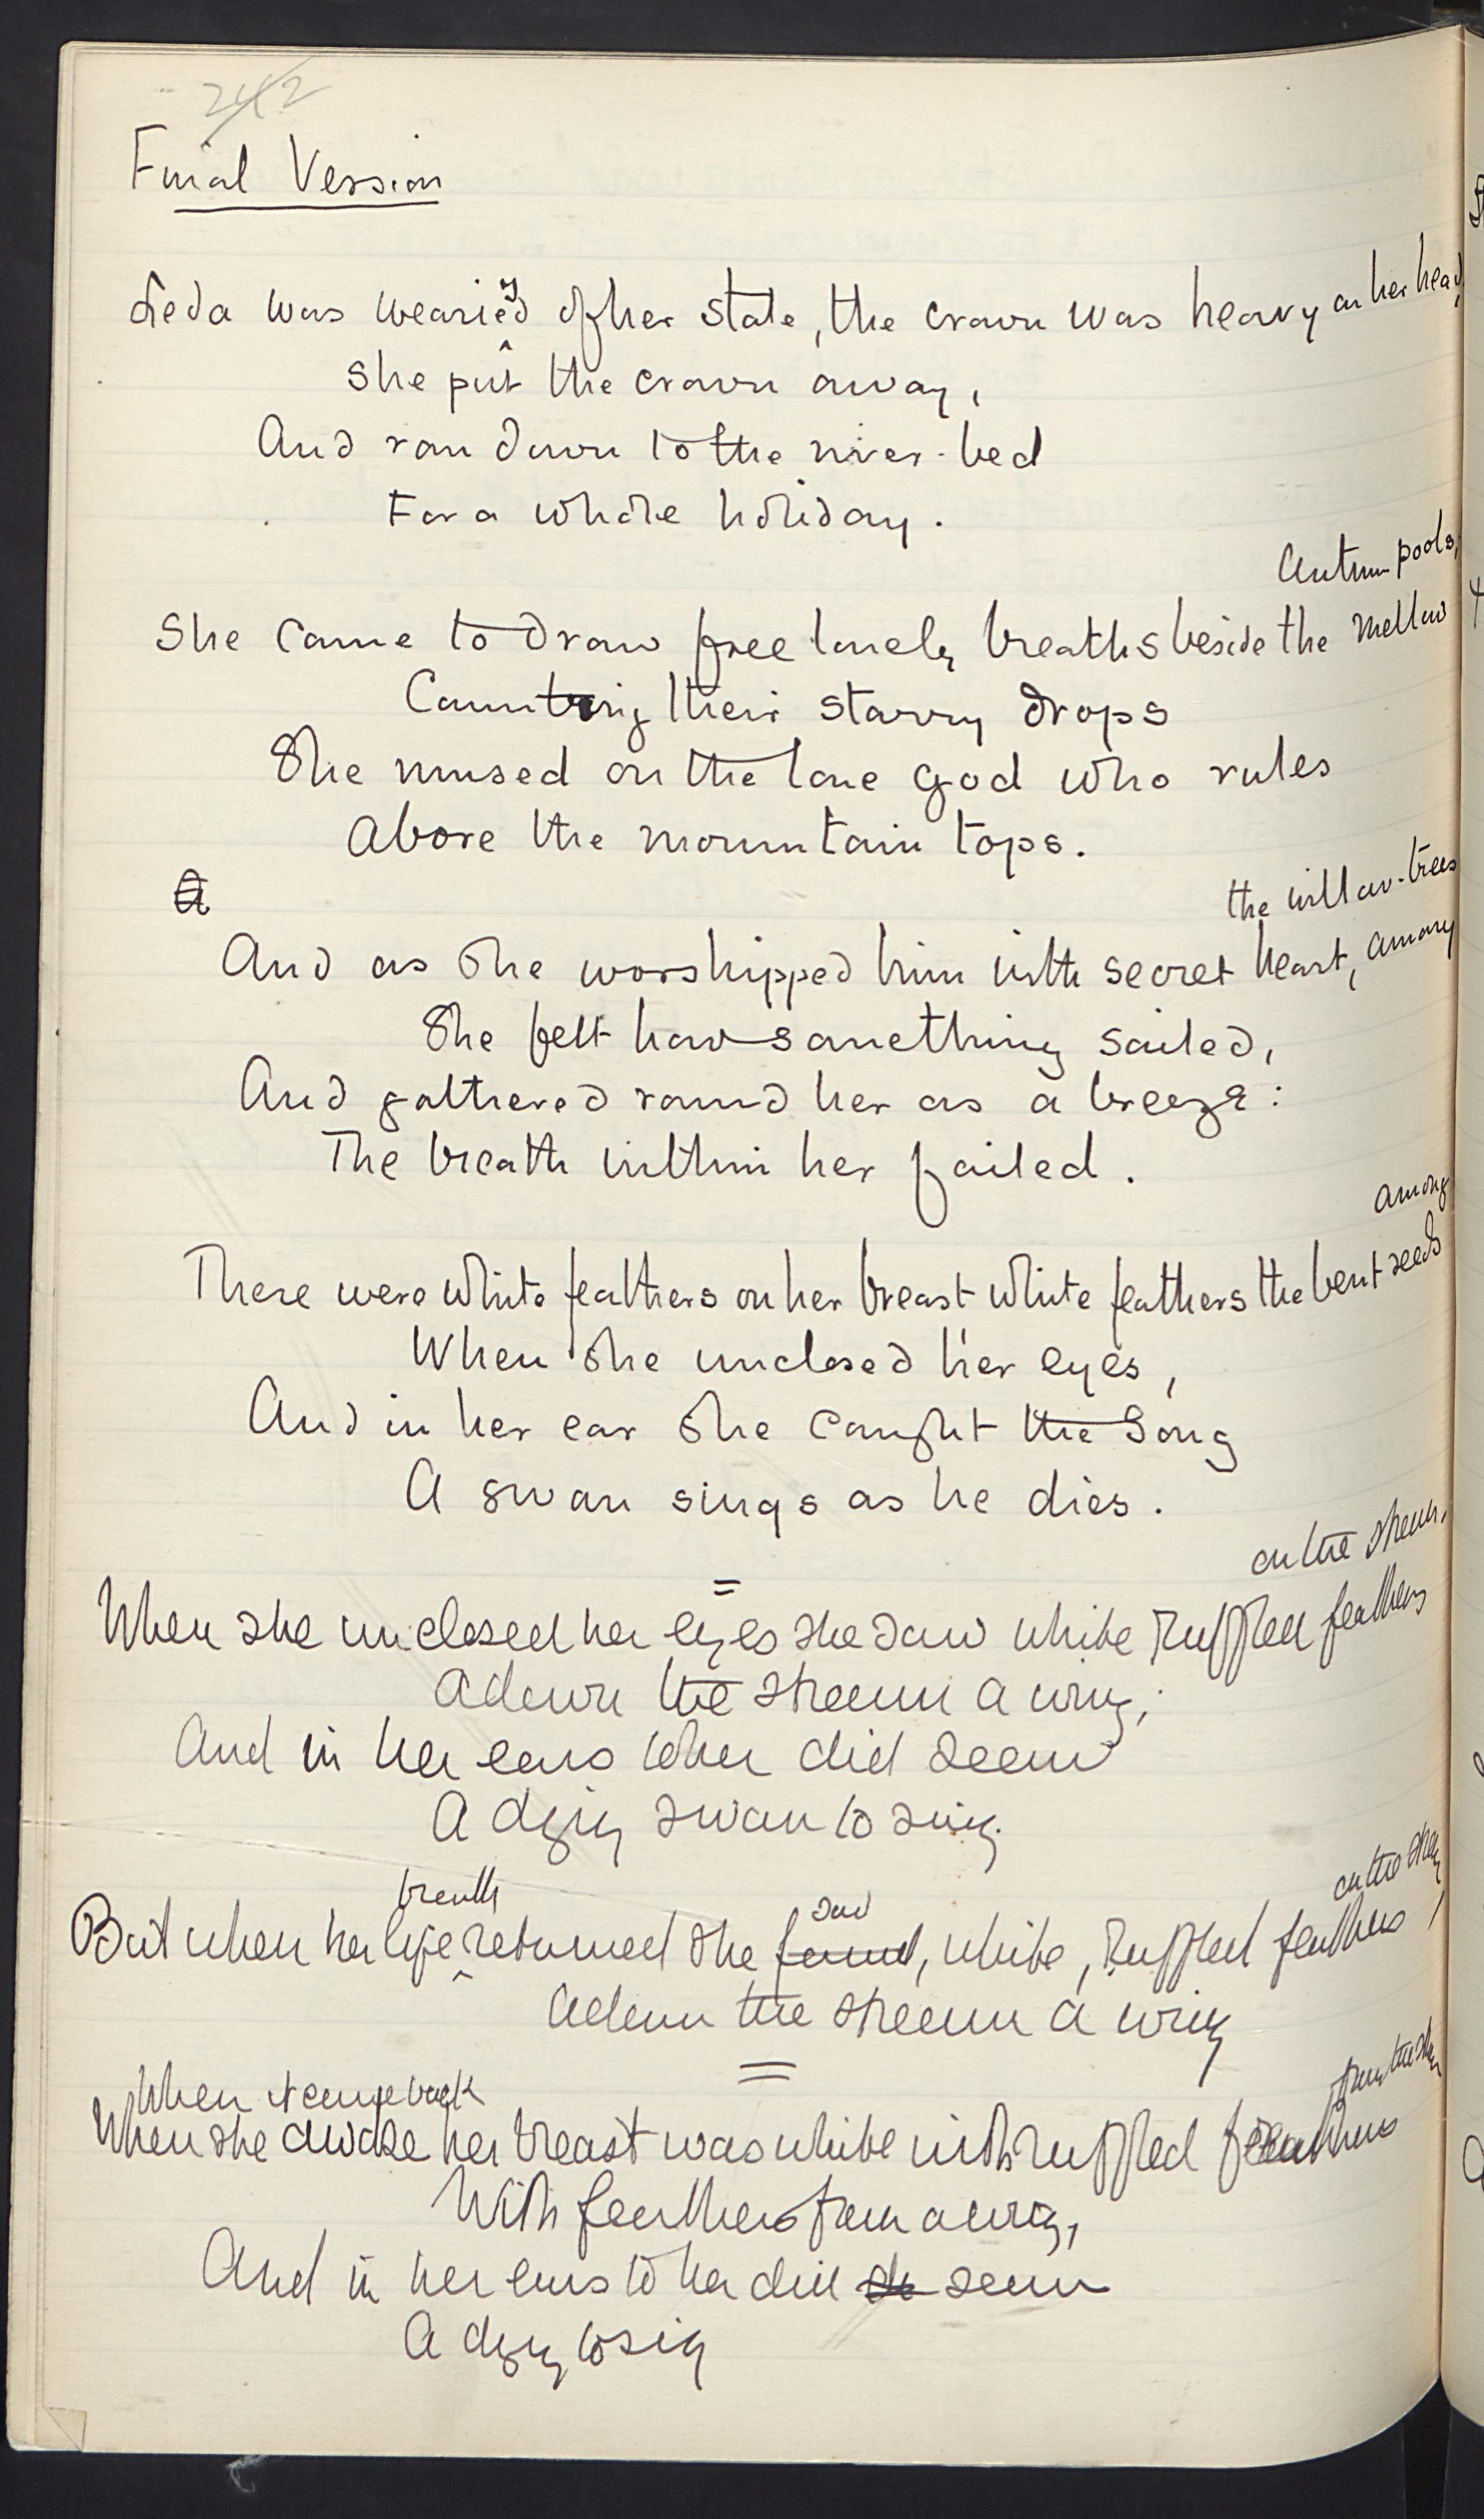 242
Final Version
Leda was wearied y of her state, the crown was heavy on her head,
She put the crown away,
And ran down to the river-bed
For a whole holiday.
She came to draw free lonely breaths beside the mellow Autumn pools,
Counting their starry drops
She mused on the lone god who rules
Above the mountain tops.
A
And as she worshipped him with secret heart, among the willow-trees
She felt how something sailed,
And gathered round her as a breeze:
The breath within her failed.
There were white feathers on her breast white feathers the bent reeds among
When she unclosed her eyes,
And in her ear she caught the song
A swan sings as he dies.
=
When she unclosed her eyes she saw white ruffled feathers on the stream,
Adown the stream a wing;
And in her ears to her did seem
A dying swan to sing.
But when her life breath returned she found saw, white, ruffled feathers on the stream,
Adown the stream a wing
=
When it came back
When she awoke her breast was white with ruffled feathers from the
With feathers from a wing,
And in her ears to her did se seem
A dying to sing